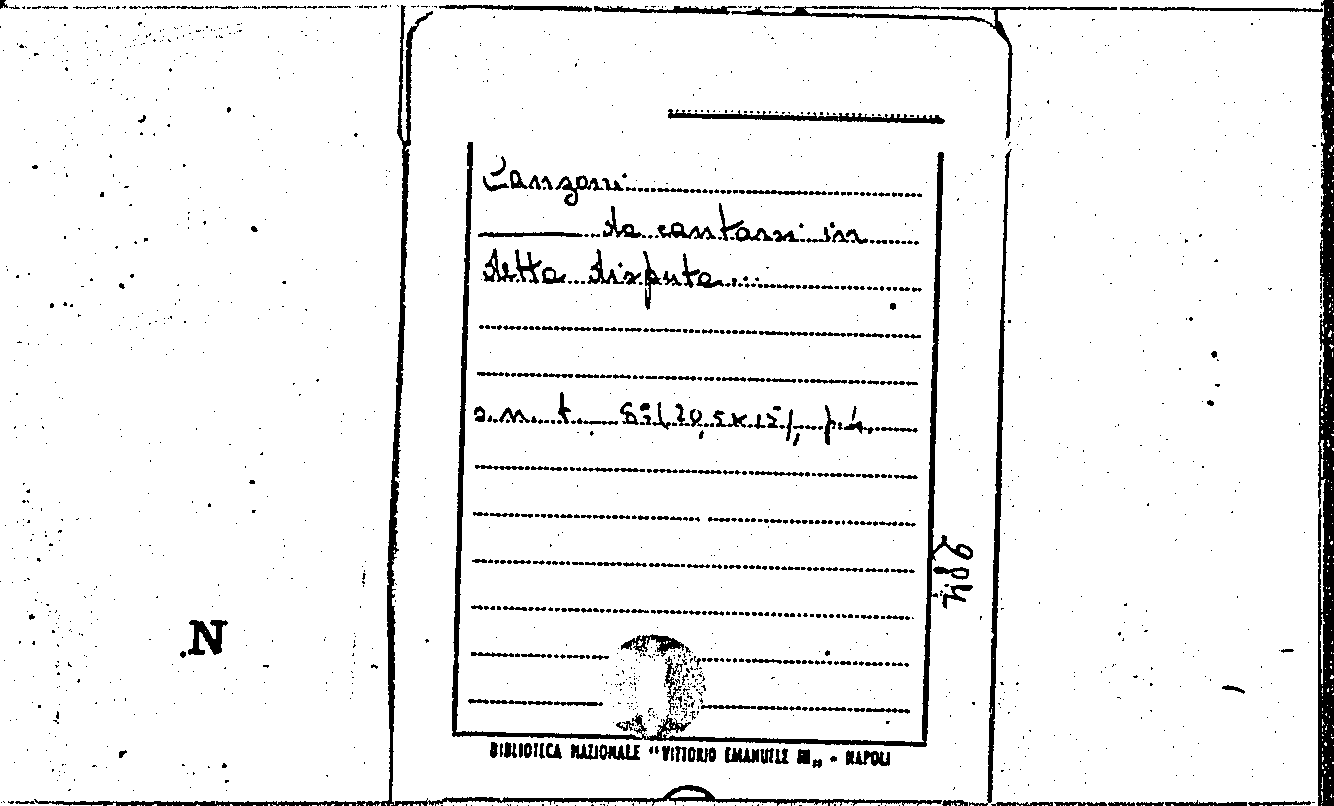 Canzoni
da cantarsi in
detta disputa...
s.n.t. 8º (20,5x15), p.4.
2804
N
BIBLIOTECA NAZIONALE "VITTORIO EMANUELE III„ - NAPOLI